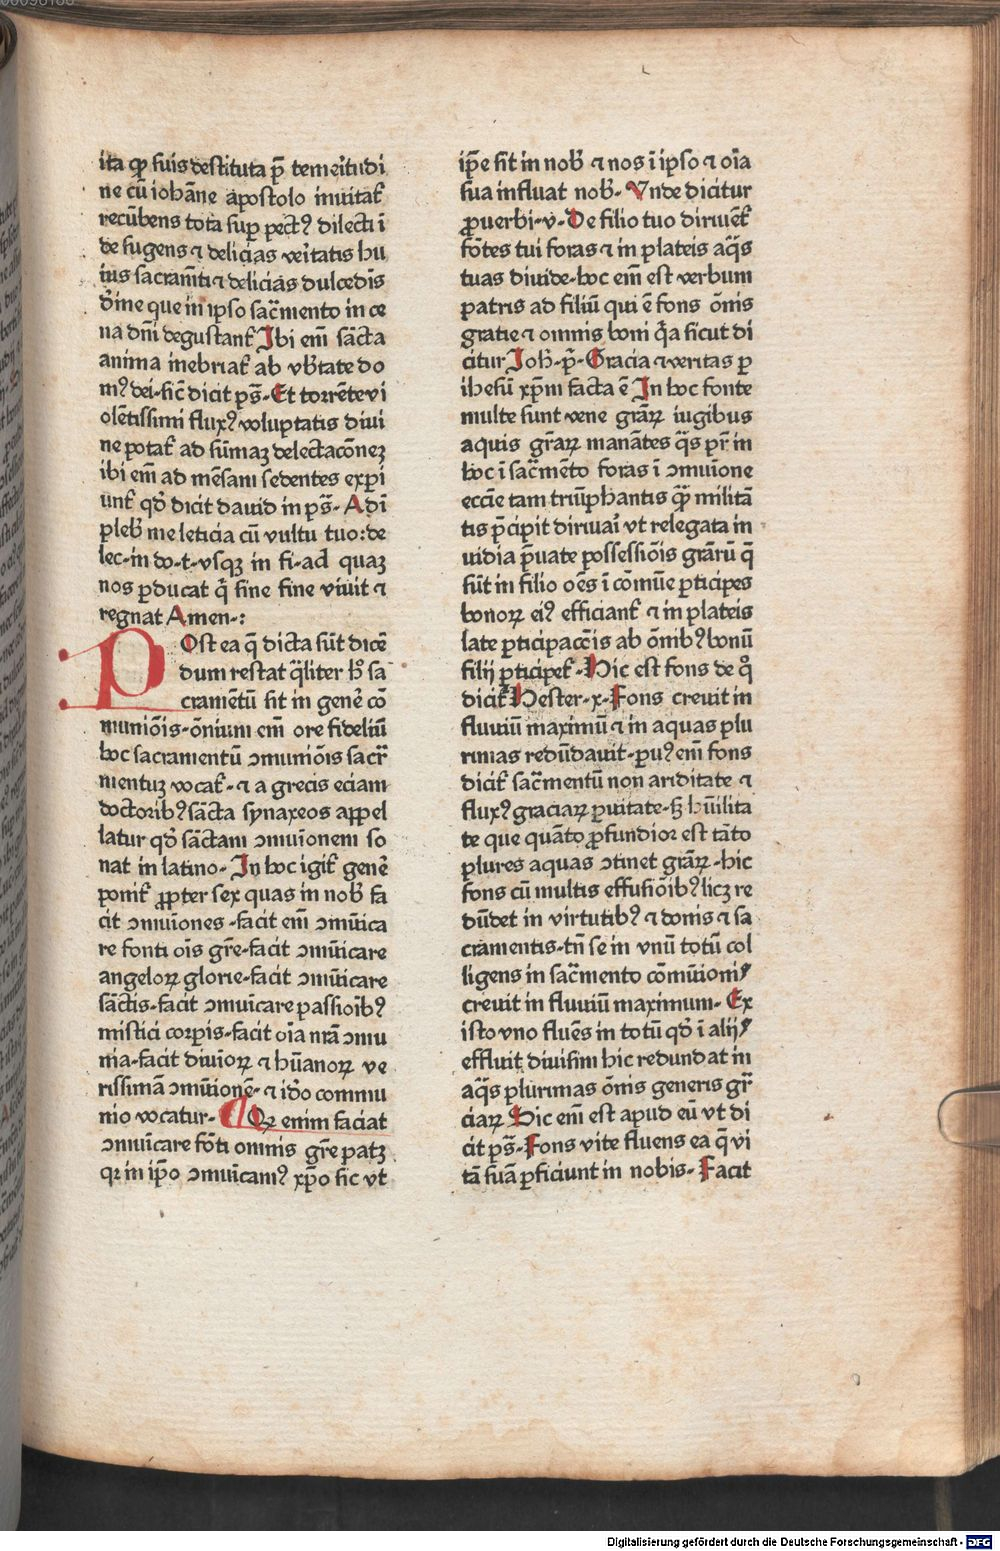 ita ꝙ suis destituta p̄ temeritudi
ne cū iohāne apostolo inuitat᷑
recūbens tota suꝑ pectꝰ dilecti ī
de sugens ⁊ delicias veritatis hu
ius sacramēti ⁊ delicias dulcedīs
diuine que in ipso sac̄mento in ce
na dn̄i degustant᷑ Ibi em̄ sancta
anima inebriat᷑ ab vb̄tate do
mꝰ dei-sic̄ dicit ps̄- Et torrēte vi
olētissimi fluxꝰ voluptatis diui
ne potat᷑ ad sūmaꝫ delectacōneꝫ
ibi em̄ ad mēsam sedentes experi
unt᷑ qd̄ dicit dauid in ps̄- Adī
pleb̄ me leticia cū vultu tuo: de
lec-in do-t-vsqꝫ in fi-ad quaꝫ
nos ꝑducat q̄ sine fine viuit ⁊
regnat Amen-:
POst ea q̄ dicta sūt dicē
dum restat q̄liter hͦ sa
cramētū sit in genē cō
muniōis-ōnium em̄ ore fideliū
hoc sacramentū ꝯmuniōis sacr̄
mentuꝫ vocat᷑-⁊ a grecis eciam
doctoribꝰ sācta synaxeos appel
latur qd̄ sāctam ꝯmuīonem so
nat in latino- In hoc igit᷑ genē
ponit᷑ ꝓpter sex quas in nob̄ fa
cit ꝯmuīones-facit em̄ ꝯmūica
re fonti oīs gr̄e-facit ꝯmūicare
angeloꝝ glorie-facit ꝯmūicare
sāctis-facit ꝯmuīcare passioībꝰ
mistici corꝑis-facit oīa nr̄a ꝯmu
nia-facit diuīoꝝ ⁊ hūanoꝝ ve
rissimā ꝯmūionē-⁊ idō commu
nio vocatur- ¶ Qꝛ enim faciat
ꝯmuīcare fōti omnis gr̄e patꝫ
qꝛ in ip̄o ꝯmuīcamꝰ xp̄o sic vt
ip̄e sit in nob̄ ⁊ nos ī ipso ⁊ oīa
sua influat nob̄- Vnde dicitur
ꝓuerbi-v-De filio tuo diriuēt᷑
fōtes tui foras ⁊ in plateis aq̄s
tuas diuide-hoc em̄ est verbum
patris ad filiū qui ē fons ōnis
gratie ⁊ omnis boni q̄a sicut di
citur Joh̄-p̄-Gracia ⁊ veritas ꝑ
ihesū xp̄m facta ē In hoc fonte
multe sunt vene gr̄aꝝ iugibus
aquis gr̄aꝝ manātes q̄s pr̄ in
hoc ī sac̄mēto foras ī ꝯmuīone
eccīe tam triūphantis q̄ꝫ militā
tis p̄cipit diriuaī vt relegata in
uidia p̄uate possessiōis grārū q̄
sūt in filio oēs ī cōmūe ꝑticipes
bonoꝝ eiꝰ efficiant᷑ ⁊ in plateis
late ꝑticipaccīs ab ōnibꝰ bonū
filij ꝑticipet᷑- Hic est fons de qͦ
dicit᷑ Hester-x-Fons creuit in
fluuiū maximū ⁊ in aquas plu
rimas redūdauit-ꝑuꝰ em̄ fons
dicit᷑ sac̄mentū non ariditate ⁊
fluxꝰ graciaꝝ ꝑuitate-sꝫ hūilita
te que quāto ꝓfundior est tāto
plures aquas ꝯtinet gr̄aꝝ-hic
fons cū multis effusiōibꝰ licꝫ re
dūdet in virtutibꝰ ⁊ donis ⁊ sa
cramentis-tn̄ se in vnū totū col
ligens in sac̄mento cōmūionis
creuit in fluuiū maximum- Ex
isto vno fluēs in totū qd̄ ī alijs
effluit diuisim hic redundat in
aq̄s plurimas ōnis generis gr̄
ciaꝝ Hic em̄ est apud eū vt di
cit ps̄-Fons vite fluens ea q̄ vi
tā suā ꝑficiunt in nobis-Facit
Digitalisierung gefördert durch die Deutsche Forschungsgemeinschaft - DFG